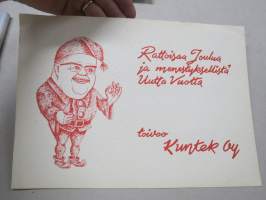 Rattoisaa Joulua
ja menestyksellistä
Uutta Vuotta
toivoo
Kuntek Oy